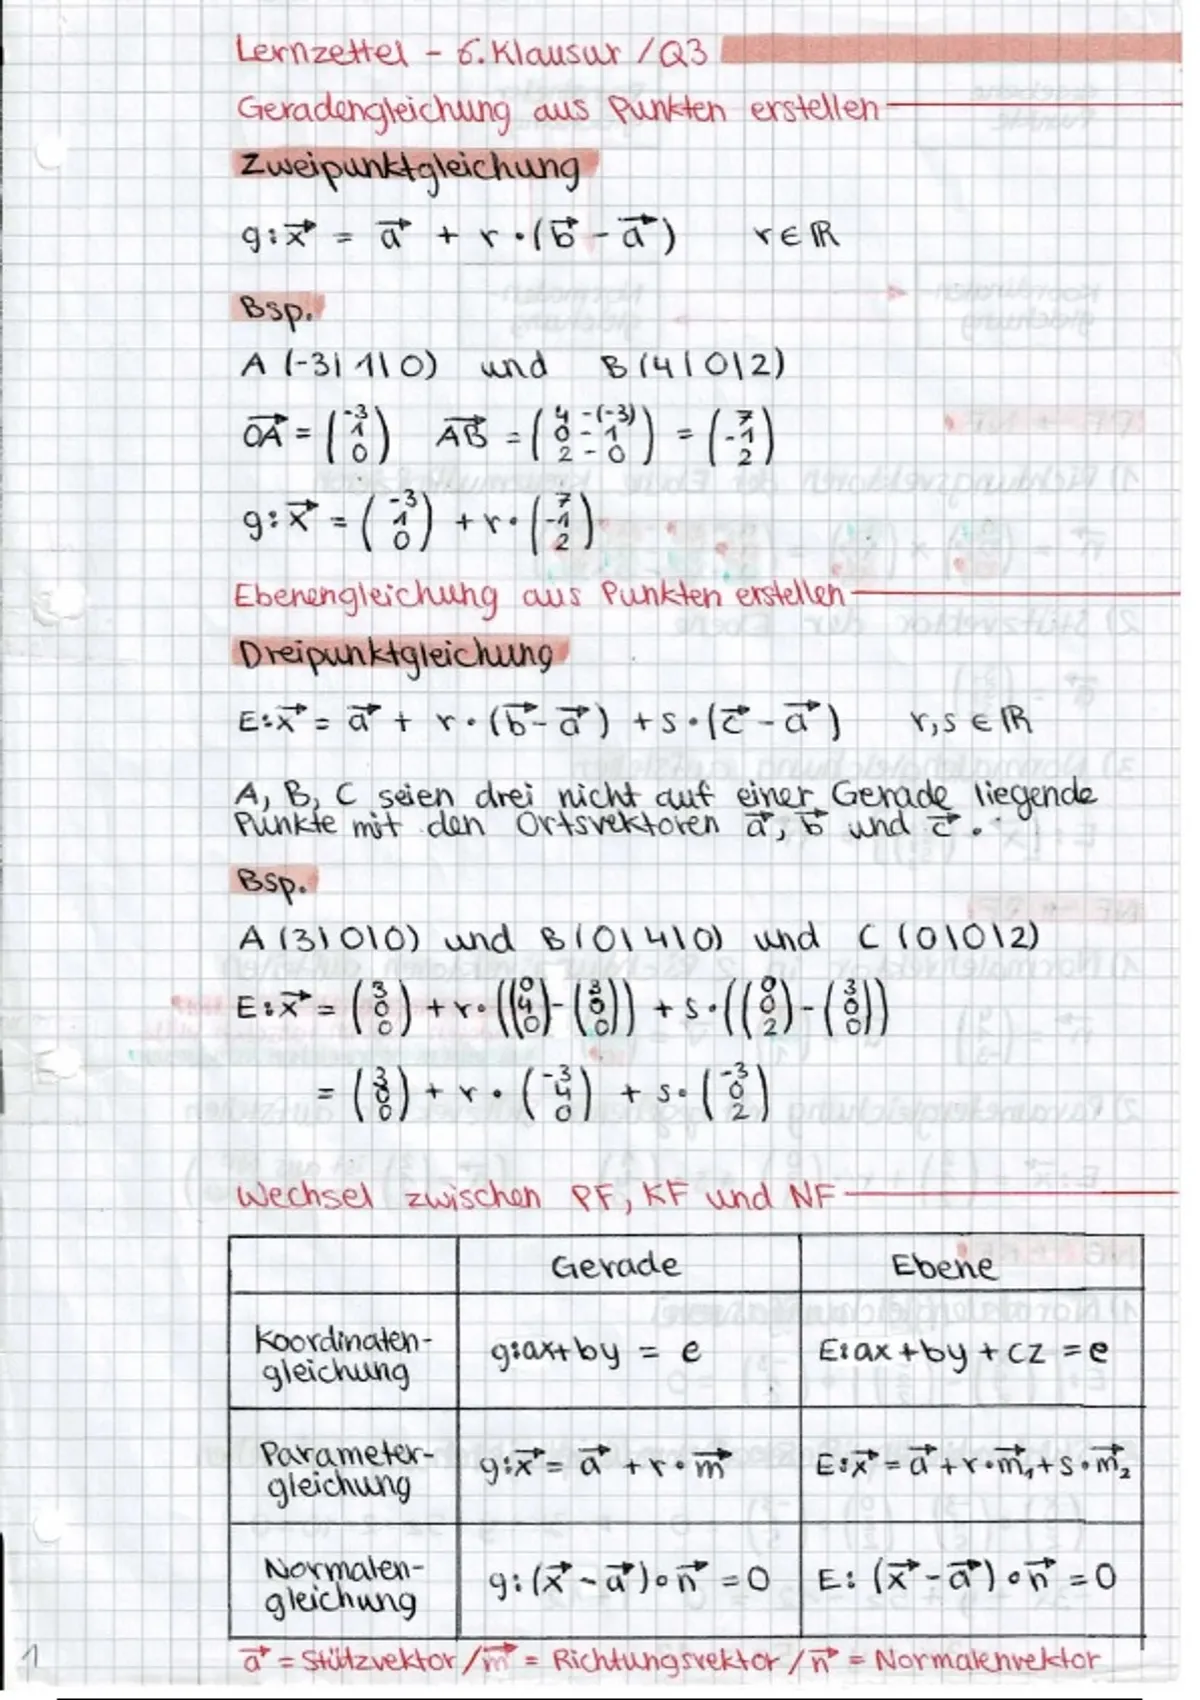 Lernzettel - 6. Klausur / Q3
Geradengleichung aus Punkten erstellen
Zweipunktgleichung
g: x⃗ = a⃗ + r · (b⃗ - a⃗) r ∈ ℝ
Bsp.
A (-3|1|0) und B (4|0|2)
OA⃗ = (-3 1 0) AB⃗ = (4-(-3) 0-1 2-0) = (7 -1 2)
g: x⃗ = (-3 1 0) + r · (7 -1 2)
Ebenengleichung aus Punkten erstellen
Dreipunktgleichung
E: x⃗ = a⃗ + r · (b⃗ - a⃗) + s · (c⃗ - a⃗) r, s ∈ ℝ
A, B, C seien drei nicht auf einer Gerade liegende
Punkte mit den Ortsvektoren a⃗, b⃗ und c⃗.
Bsp.
A (3|0|0) und B (0|4|0) und C (0|0|2)
E: x⃗ = (3 0 0) + r · ((0 4 0) - (3 0 0)) + s · ((0 0 2) - (3 0 0))
= (3 0 0) + r · (-3 4 0) + s · (-3 0 2)
Wechsel zwischen PF, KF und NF
Gerade Ebene
Koordinaten-
gleichung g: ax + by = e E: ax + by + cz = e
Parameter-
gleichung g: x⃗ = a⃗ + r · m⃗ E: x⃗ = a⃗ + r · m⃗₁ + s · m⃗₂
Normalen-
gleichung g: (x⃗ - a⃗) ∘ n⃗ = 0 E: (x⃗ - a⃗) ∘ n⃗ = 0
a⃗ = Stützvektor / m⃗ = Richtungsvektor / n⃗ = Normalenvektor
1